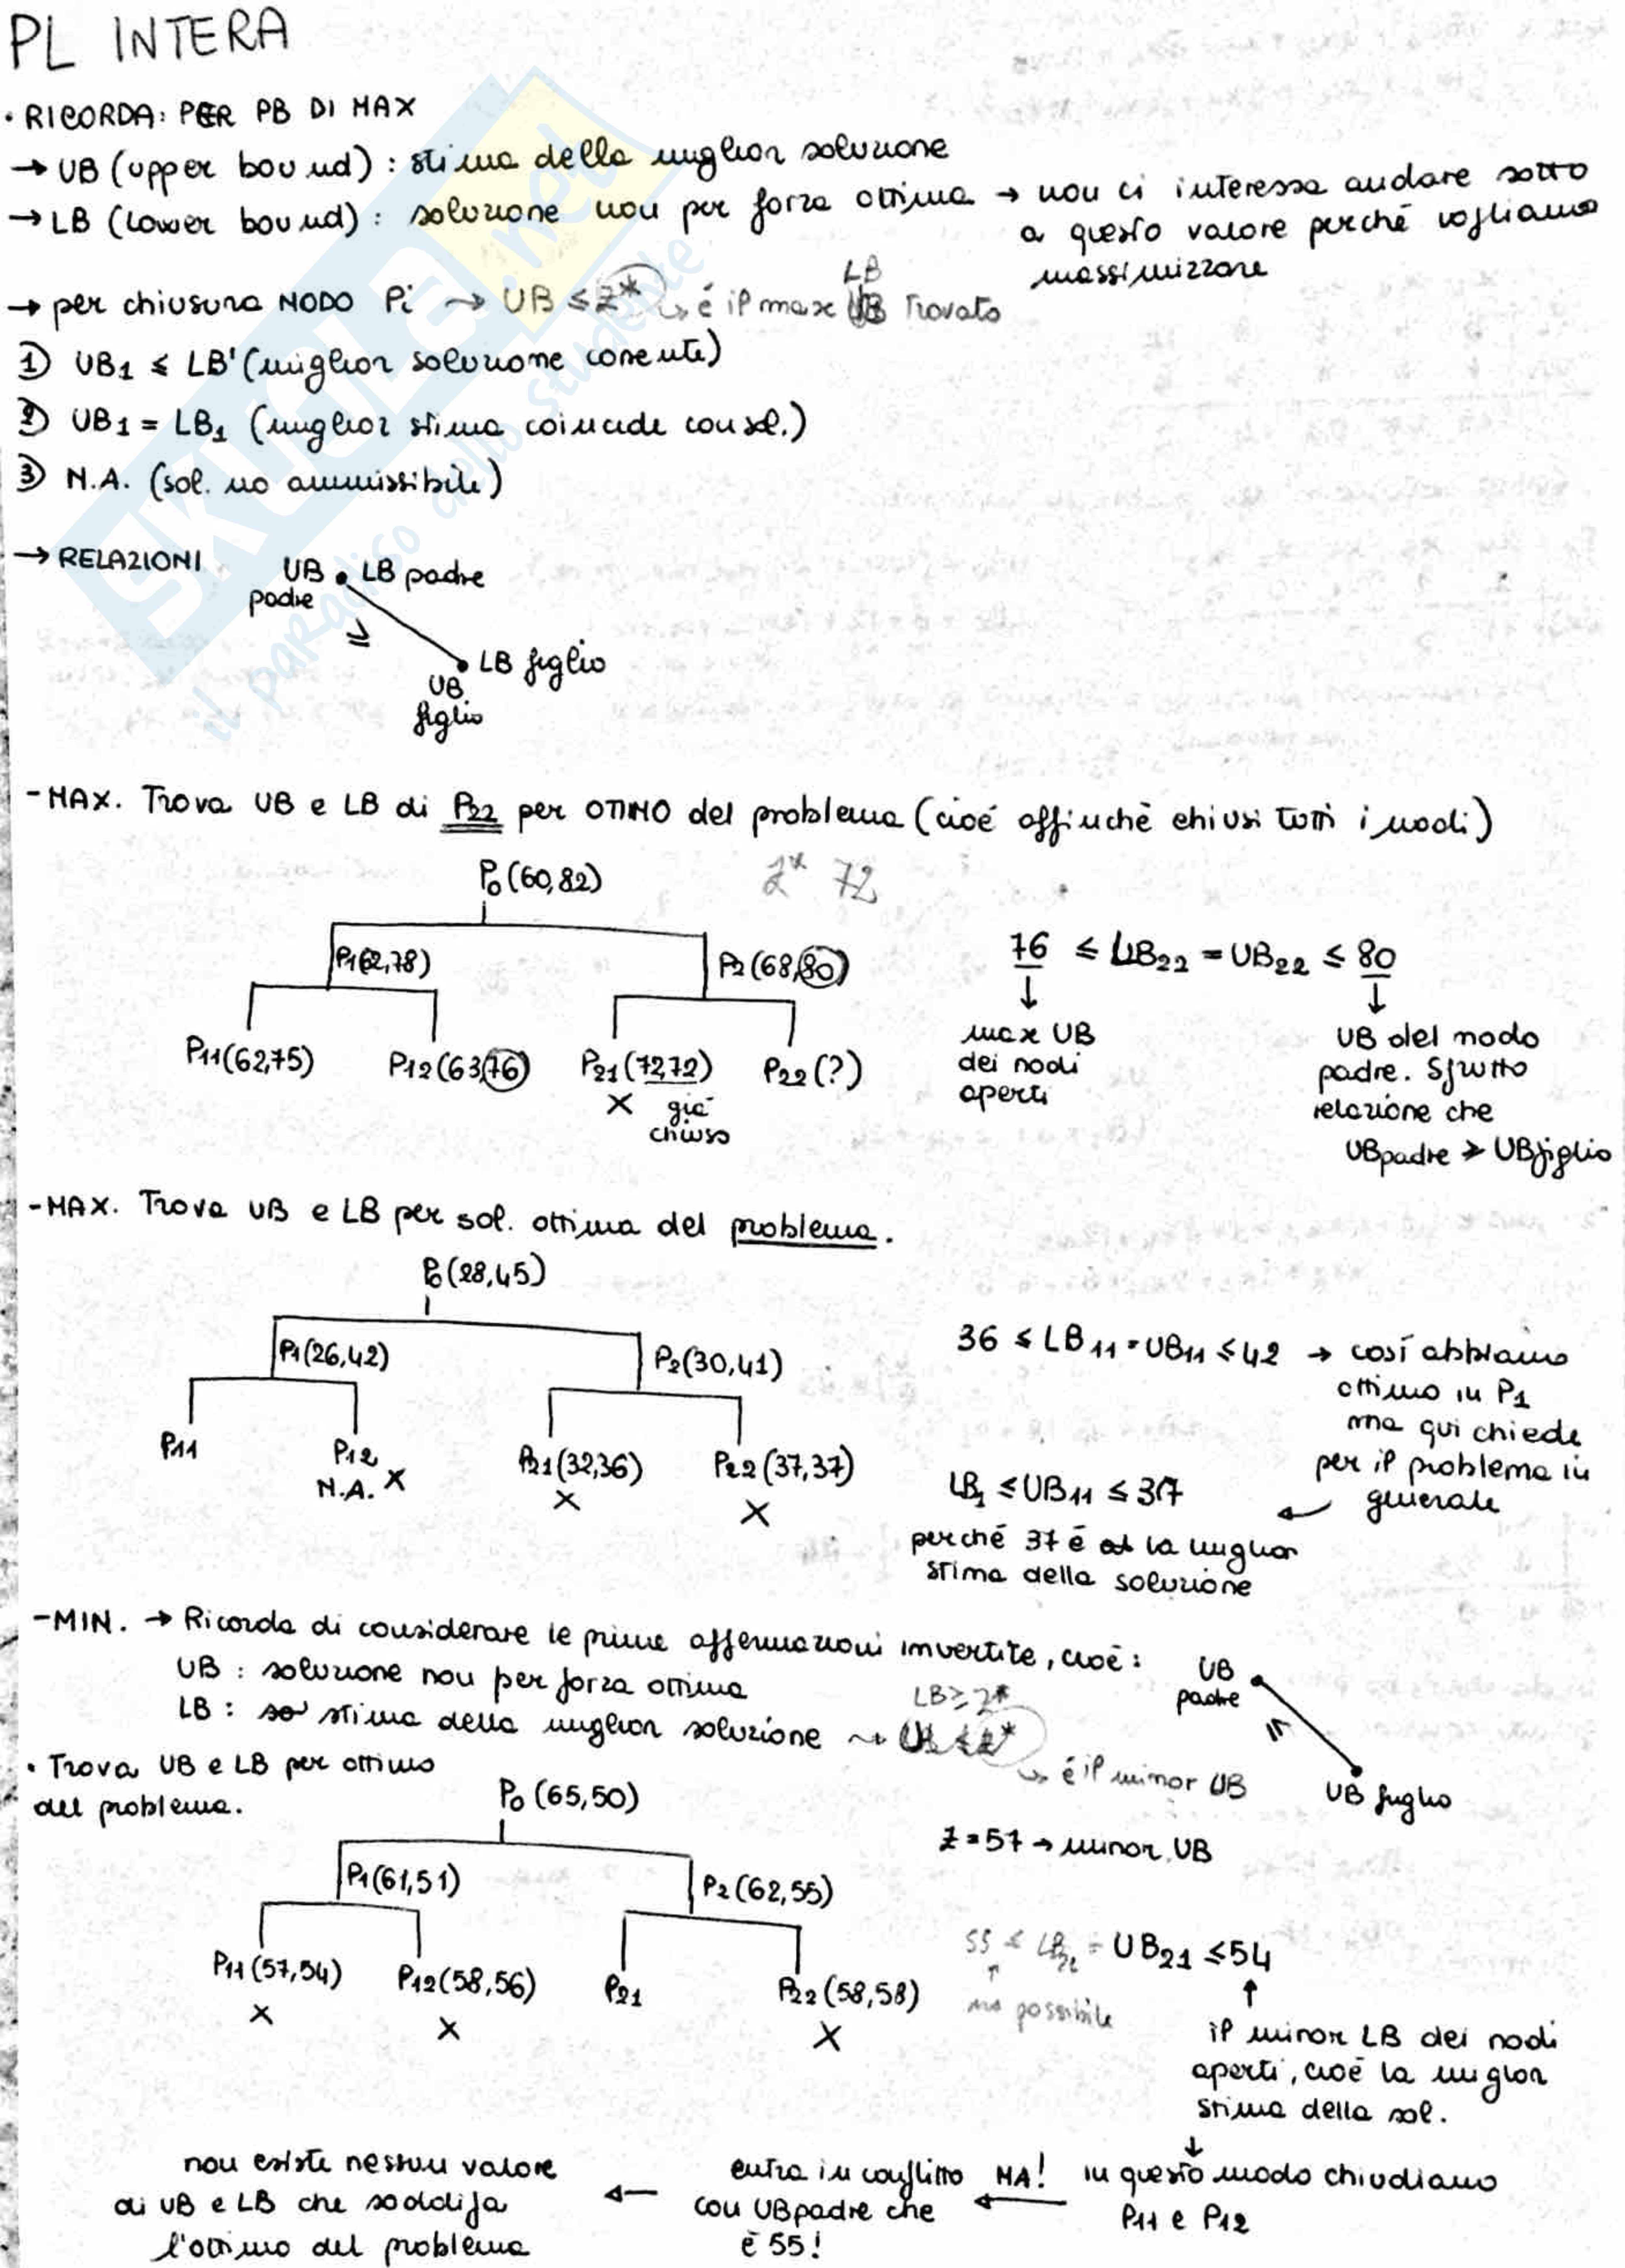 PL INTERA
• RICORDA: PER PB DI MAX
→ UB (upper bound) : stima della miglior soluzione
→ LB (lower bound) : soluzione non per forza ottima → non ci interessa andare sotto
a questo valore perché vogliamo
massimizzare
→ per chiusura NODO Pi ⇝ UB ≤ Z* ↳ é il max LB trovato
1) UB1 ≤ LB' (miglior soluzione corrente)
2) UB1 = LB1 (miglior stima coincide con sol.)
3) N.A. (sol. no ammissibile)
→ RELAZIONI
UB padre • LB padre
≥
• LB figlio
UB
figlio
- MAX. Trova UB e LB di P22 per OTTIMO del problema (cioé affinchè chiusi tutti i nodi)
P0 (60,82)
Z* 72
P1(62,78)
P2 (68,80)
76 ≤ LB22 = UB22 ≤ 80
P11(62,75)
P12(63,76)
P21(72,72)
P22(?)
X già
chiuso
max UB
dei nodi
aperti
UB del nodo
padre. Sfrutto
relazione che
UBpadre ≥ UBfiglio
- MAX. Trova UB e LB per sol. ottima del problema.
P0(28,45)
P1(26,42)
P2(30,41)
36 ≤ LB11 = UB11 ≤ 42 → cosí abbiamo
ottimo in P1
ma qui chiede
per il problema in
generale
P11
P12
N.A. X
P21(32,36)
X
P22(37,37)
X
LB1 ≤ UB11 ≤ 37
perché 37 é la miglior
stima della soluzione
- MIN. → Ricorda di considerare le prime affermazioni invertite, cioè :
UB : soluzione non per forza ottima
LB : stima della miglior soluzione ⇝
LB ≥ z*
↳ é il minor UB
UB
padre
UB figlio
• Trova UB e LB per ottimo
del problema.
P0 (65,50)
Z = 57 → minor UB
P1(61,51)
P2(62,55)
P11(57,54)
X
P12(58,56)
X
P21
P22(58,58)
X
55 ≤ LB21 = UB21 ≤ 54
no possibile
il minor LB dei nodi
aperti, cioè la miglior
stima della sol.
in questo modo chiudiamo
P11 e P12
MA!
entra in conflitto
con UBpadre che
è 55!
non esiste nessun valore
di UB e LB che soddisfa
l'ottimo del problema
SKUOLA.net
il paradiso dello studente